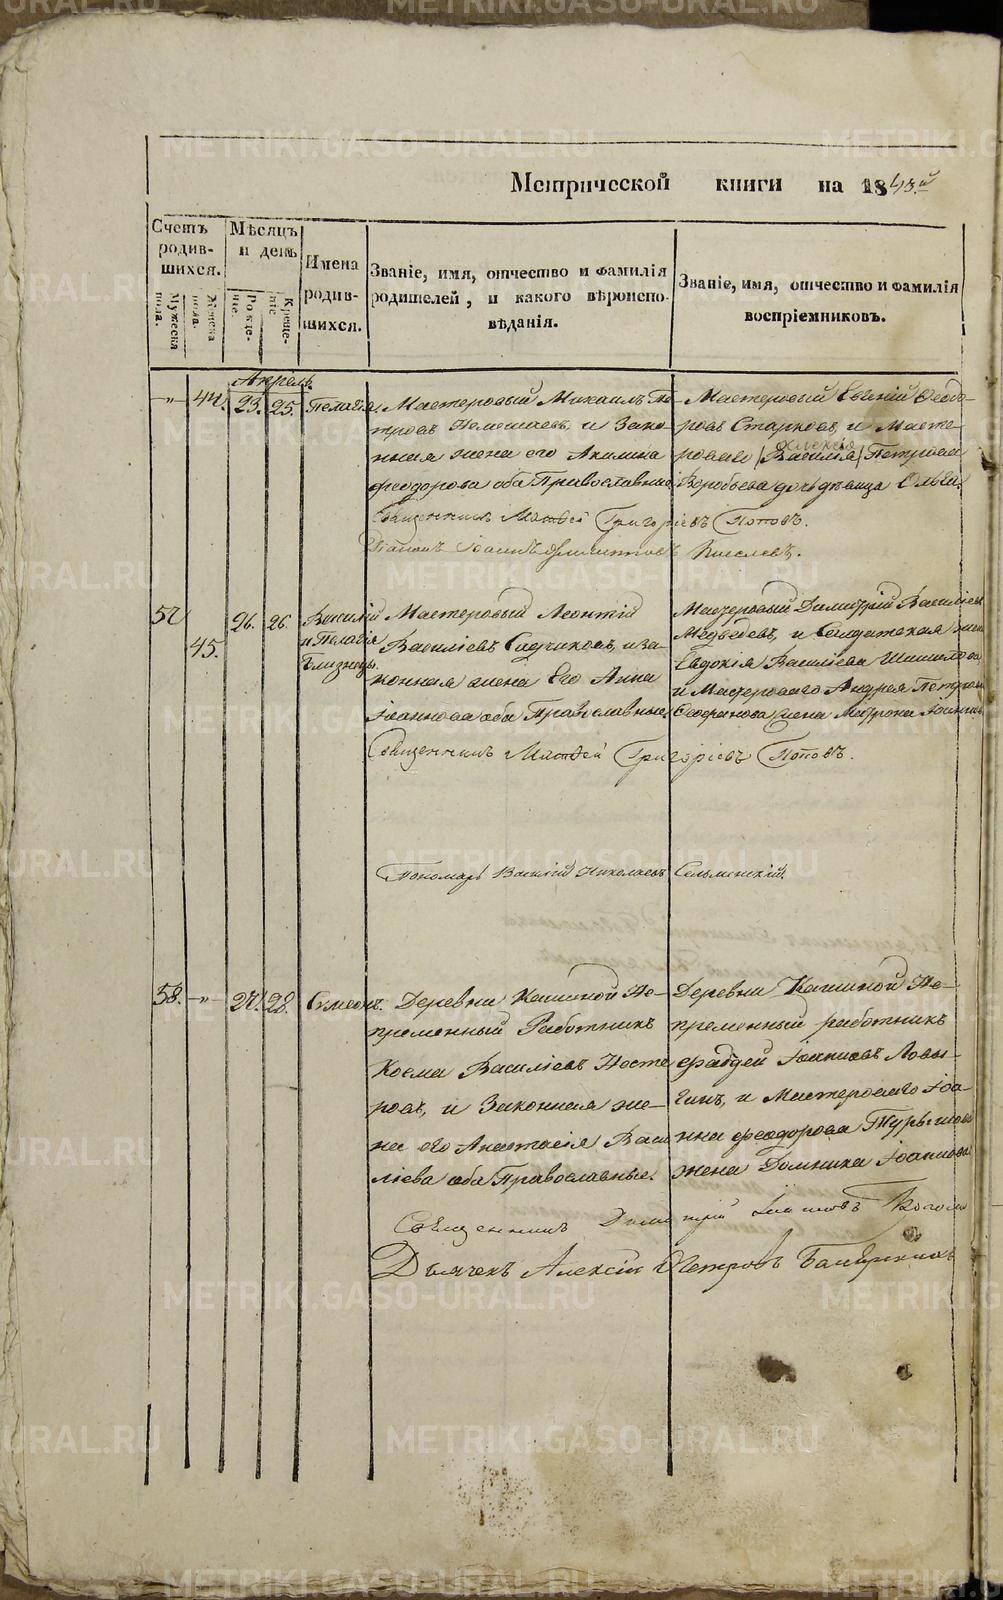 Метрической книги на 1843.й
Счетъ родив-шихся.
Мужеска пола.
Женска пола.
Мѣсяцъ и день
Рожде-ніе
Креще-ніе
Имена родив-шихся.
Званіе, имя, отчество и фамилія
родителей, и какого вѣроиспо-
вѣданія.
Званіе, имя, отчество и фамилія
воспріемниковъ.
Апрель.
-"- 44. 23. 25. Пелагія
Мастеровый Михаилъ Пе-
тровъ и Зако-
нная жена его Акилина
Феодорова оба Православные
Мастеровый Евгеній Феодо-
ровъ Старковъ, и Масте-
Алексія
роваго (Василія) Петрова
Воробьева дочь дѣвица Ольга.
Священникъ Матвей Григоріевъ Поповъ.
Іоаннъ Киселевъ.
57 45. 26. 26. Василій
и Пелагія
Близнецы.
Мастеровый Леонтій
Василіевъ Садчиковъ, и за-
конная жена Его Анна
Іоаннова оба Православные.
Мастеровый Димитрій Василіев
Медведевъ, и Солдатская жена
Евдокія Василіева Шишлова
и Мастероваго Андрея Петрова
жена Матрона Іоаннова
Священникъ Матвей Григоріевъ Поповъ.
Пономарь Василій Николаевъ Сельменскій.
58. -"- 27. 28. Симеонъ.
Деревни Кашиной Не-
пременный Работникъ
Косма Василіевъ Носте
ровъ, и Законная же-
на его Анастасія Васи
ліева оба Православные.
Деревни Кашиной Не-
пременный работникъ
Фаддей Іоанновъ Ловы-
гинъ, и Мастероваго Іоа-
нна Феодорова Турыгина
жена Домника Іоаннова
Священникъ Димитрій Іоанновъ
Дьячекъ Алексій Петровъ
METRIKI.GASO-URAL.RU